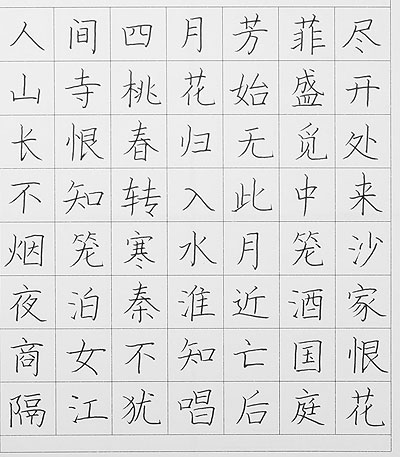 人间四月芳菲尽
山寺桃花始盛开
长恨春归无觅处
不知转入此中来
烟笼寒水月笼沙
夜泊秦淮近酒家
商女不知亡国恨
隔江犹唱后庭花